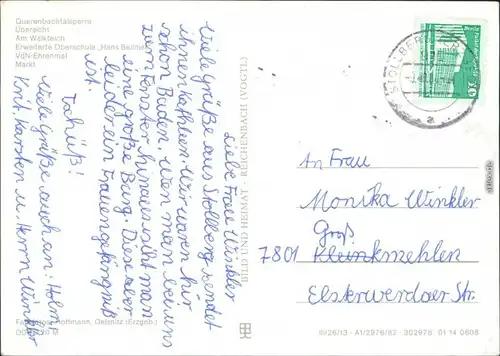 Querenbachtalsperre
Übersicht
Am Walkteich
Erweiterte Oberschule „Hans Beimler"
VdN-Ehrenmal
Markt
Liebe Frau Winkler
Viele Grüße aus Stollberg sendet
ihnen Kathleen. Wir waren hir
schon Baden. Wen man bei uns
zum Fenster hinaus sieht man
eine große Burg. Diese aber
leider ein Frauengefängniß
ist.
Tschüß!
Viele Grüße auch an: Holm
Horst, Karsten u. Herrn Winkler
Hoffmann, Oelsnitz (Erzgeb.)
BILD UND HEIMAT · REICHENBACH (VOGTL)
STOLLBERG
a
An Frau
Monika Winkler
Groß
7801 Kleinkmehlen
Elsterwerdaer Str.
III/26/13 · A1/2976/82 · 302978 01 14 0608